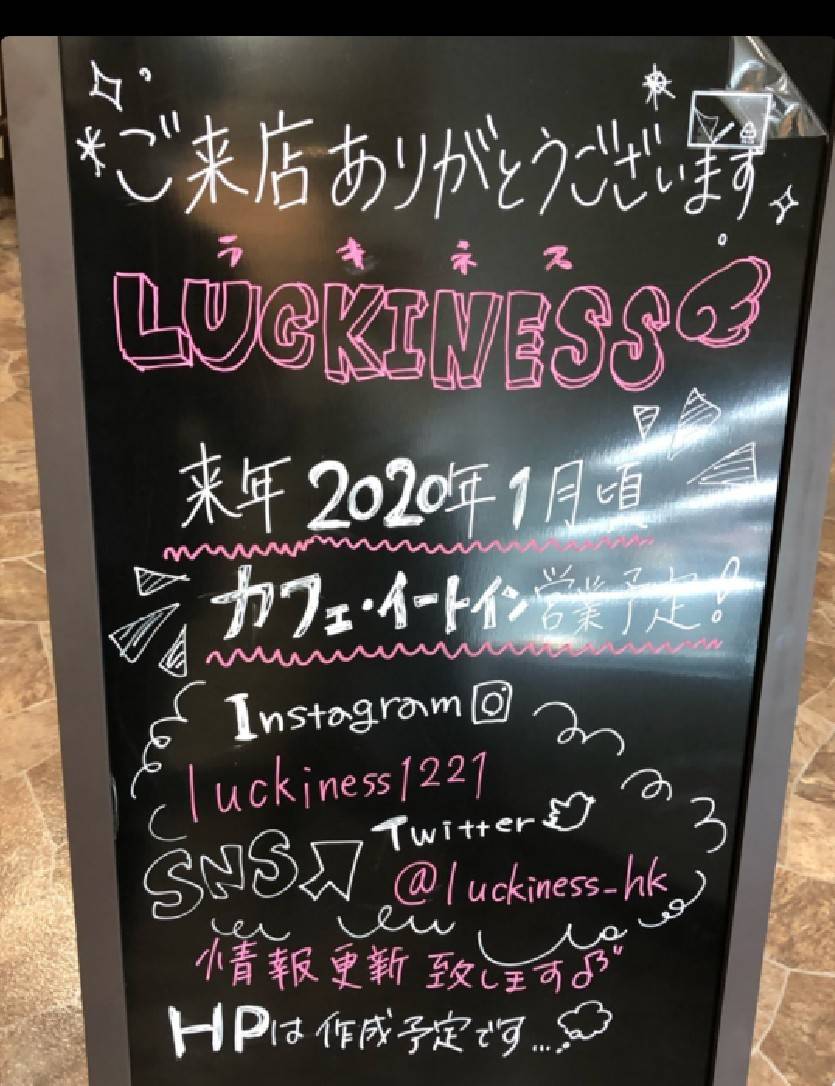 ご来店ありがとうございます
ラキネス
LUCKINESS
来年2020年1月頃
カフェ・イートイン営業予定!
Instagram
luckiness1221
Twitter
SNS
@luckiness_hk
情報更新致します♪
HPは作成予定です...